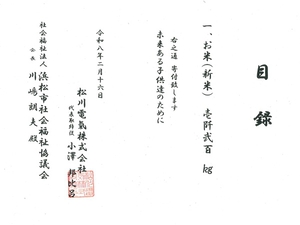 目録
一、お米(新米) 壱阡弐百 kg
右之通 寄付致します
未来ある子供達のために
令和八年二月十六日
松川電氣株式会社
代表取締役 小澤 邦比呂
社会福祉法人 浜松市社会福祉協議会
会長 川嶋 朗夫 殿